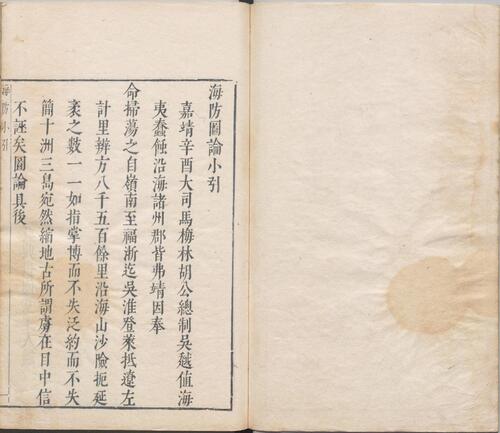 海防圖論小引
嘉靖辛酉大司馬梅林胡公總制吳越值海
夷蠢蝕沿海諸州郡皆弗靖因奉
命掃蕩之自嶺南至福浙迄吳淮登萊抵遼左
計里辨方八千五百餘里沿海山沙險扼延
袤之數一一如指掌博而不失泛約而不失
簡十洲三島宛然縮地古所謂虜在目中信
不誣矣圖論具後
海防小引